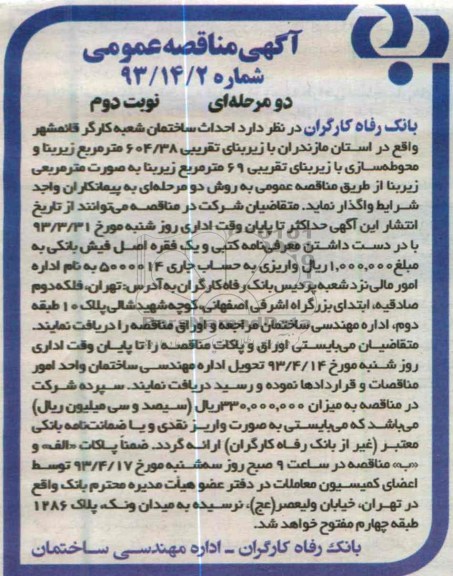 آگهی مناقصه عمومی
شماره ۹۳/۱۴/۲
دو مرحله‌ای نوبت دوم
بانک رفاه کارگران در نظر دارد احداث ساختمان شعبه کارگر قائمشهر
واقع در استان مازندران با زیربنای تقریبی ۶۰۴/۳۸ مترمربع زیربنا و
محوطه‌سازی با زیربنای تقریبی ۶۹ مترمربع زیربنا به صورت مترمربعی
زیربنا از طریق مناقصه عمومی به روش دو مرحله‌ای به پیمانکاران واجد
شرایط واگذار نماید. متقاضیان شرکت در مناقصه می‌توانند از تاریخ
انتشار این آگهی حداکثر تا پایان وقت اداری روز شنبه مورخ ۹۳/۳/۳۱
با در دست داشتن معرفی‌نامه کتبی و یک فقره اصل فیش بانکی به
مبلغ ۱,۰۰۰,۰۰۰ ریال واریزی به حساب جاری ۵۰۰۰۰۱۴ به نام اداره
امور مالی نزد شعبه پردیس بانک رفاه کارگران به آدرس: تهران، فلکه دوم
صادقیه، ابتدای بزرگراه اشرفی اصفهانی، کوچه شهید شالی پلاک ۱۰ طبقه
دوم، اداره مهندسی ساختمان مراجعه و اوراق مناقصه را دریافت نمایند.
متقاضیان می‌بایستی اوراق و پاکات مناقصه را تا پایان وقت اداری
روز شنبه مورخ ۹۳/۴/۱۴ تحویل اداره مهندسی ساختمان واحد امور
مناقصات و قراردادها نموده و رسید دریافت نمایند. سپرده شرکت
در مناقصه به میزان ۳۳۰,۰۰۰,۰۰۰ریال (سیصد و سی میلیون ریال)
می‌باشد که می‌بایستی به صورت واریز نقدی و یا ضمانت‌نامه بانکی
معتبر (غیر از بانک رفاه کارگران) ارائه گردد. ضمناً پاکات «الف» و
«ب» مناقصه در ساعت ۹ صبح روز سه‌شنبه مورخ ۹۳/۴/۱۷ توسط
اعضای کمیسیون معاملات در دفتر عضو هیأت مدیره محترم بانک واقع
در تهران، خیابان ولیعصر(عج)، نرسیده به میدان ونک، پلاک ۱۲۸۶
طبقه چهارم مفتوح خواهد شد.
بانک رفاه کارگران ـ اداره مهندسی ساختمان